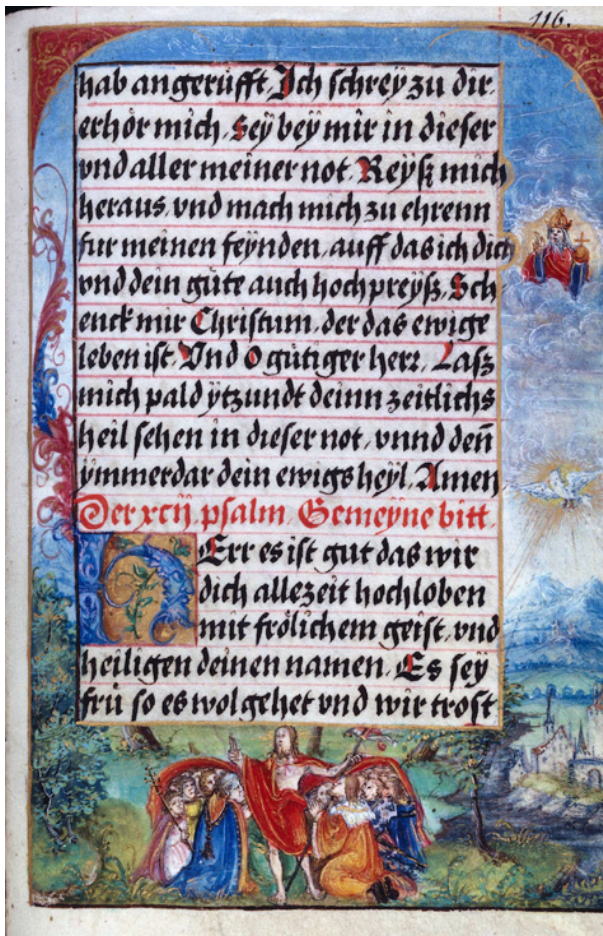 116.
hab angerüfft. Ich schrey zu dir.
erhör mich. Sey bey mir in dieser
vnd aller meiner not. Reysz mich
heraus, vnd mach mich zu ehrenn
fur meinen feynden, auff das ich dich
vnd dein güte auch hochpreysz. Sch-
enck mir Christum, der das ewige
leben ist. Vnd O gütiger herr. Lasz
mich pald ytzundt deinn zeitlichs
heil sehen in dieser not, vnnd den̄
ymmerdar dein ewigs heyl. Amen
Der xcij. psalm. Gemeyne bitt.
HErr es ist gut das wir
dich allezeit hochloben
mit frölichem geist, vnd
heiligen deinen namen. Es sey
frü so es wol gehet vnd wir trost